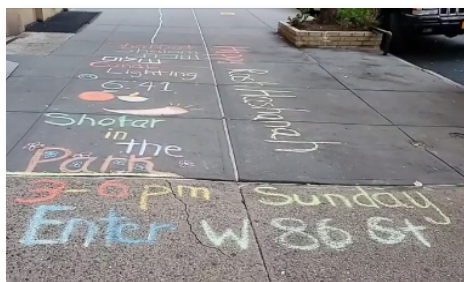 שלום
Candle
Lighting
6:41
Shofar
in
the
Park
3-6pm Sunday
Enter W 86 St
Rosh Hashanah